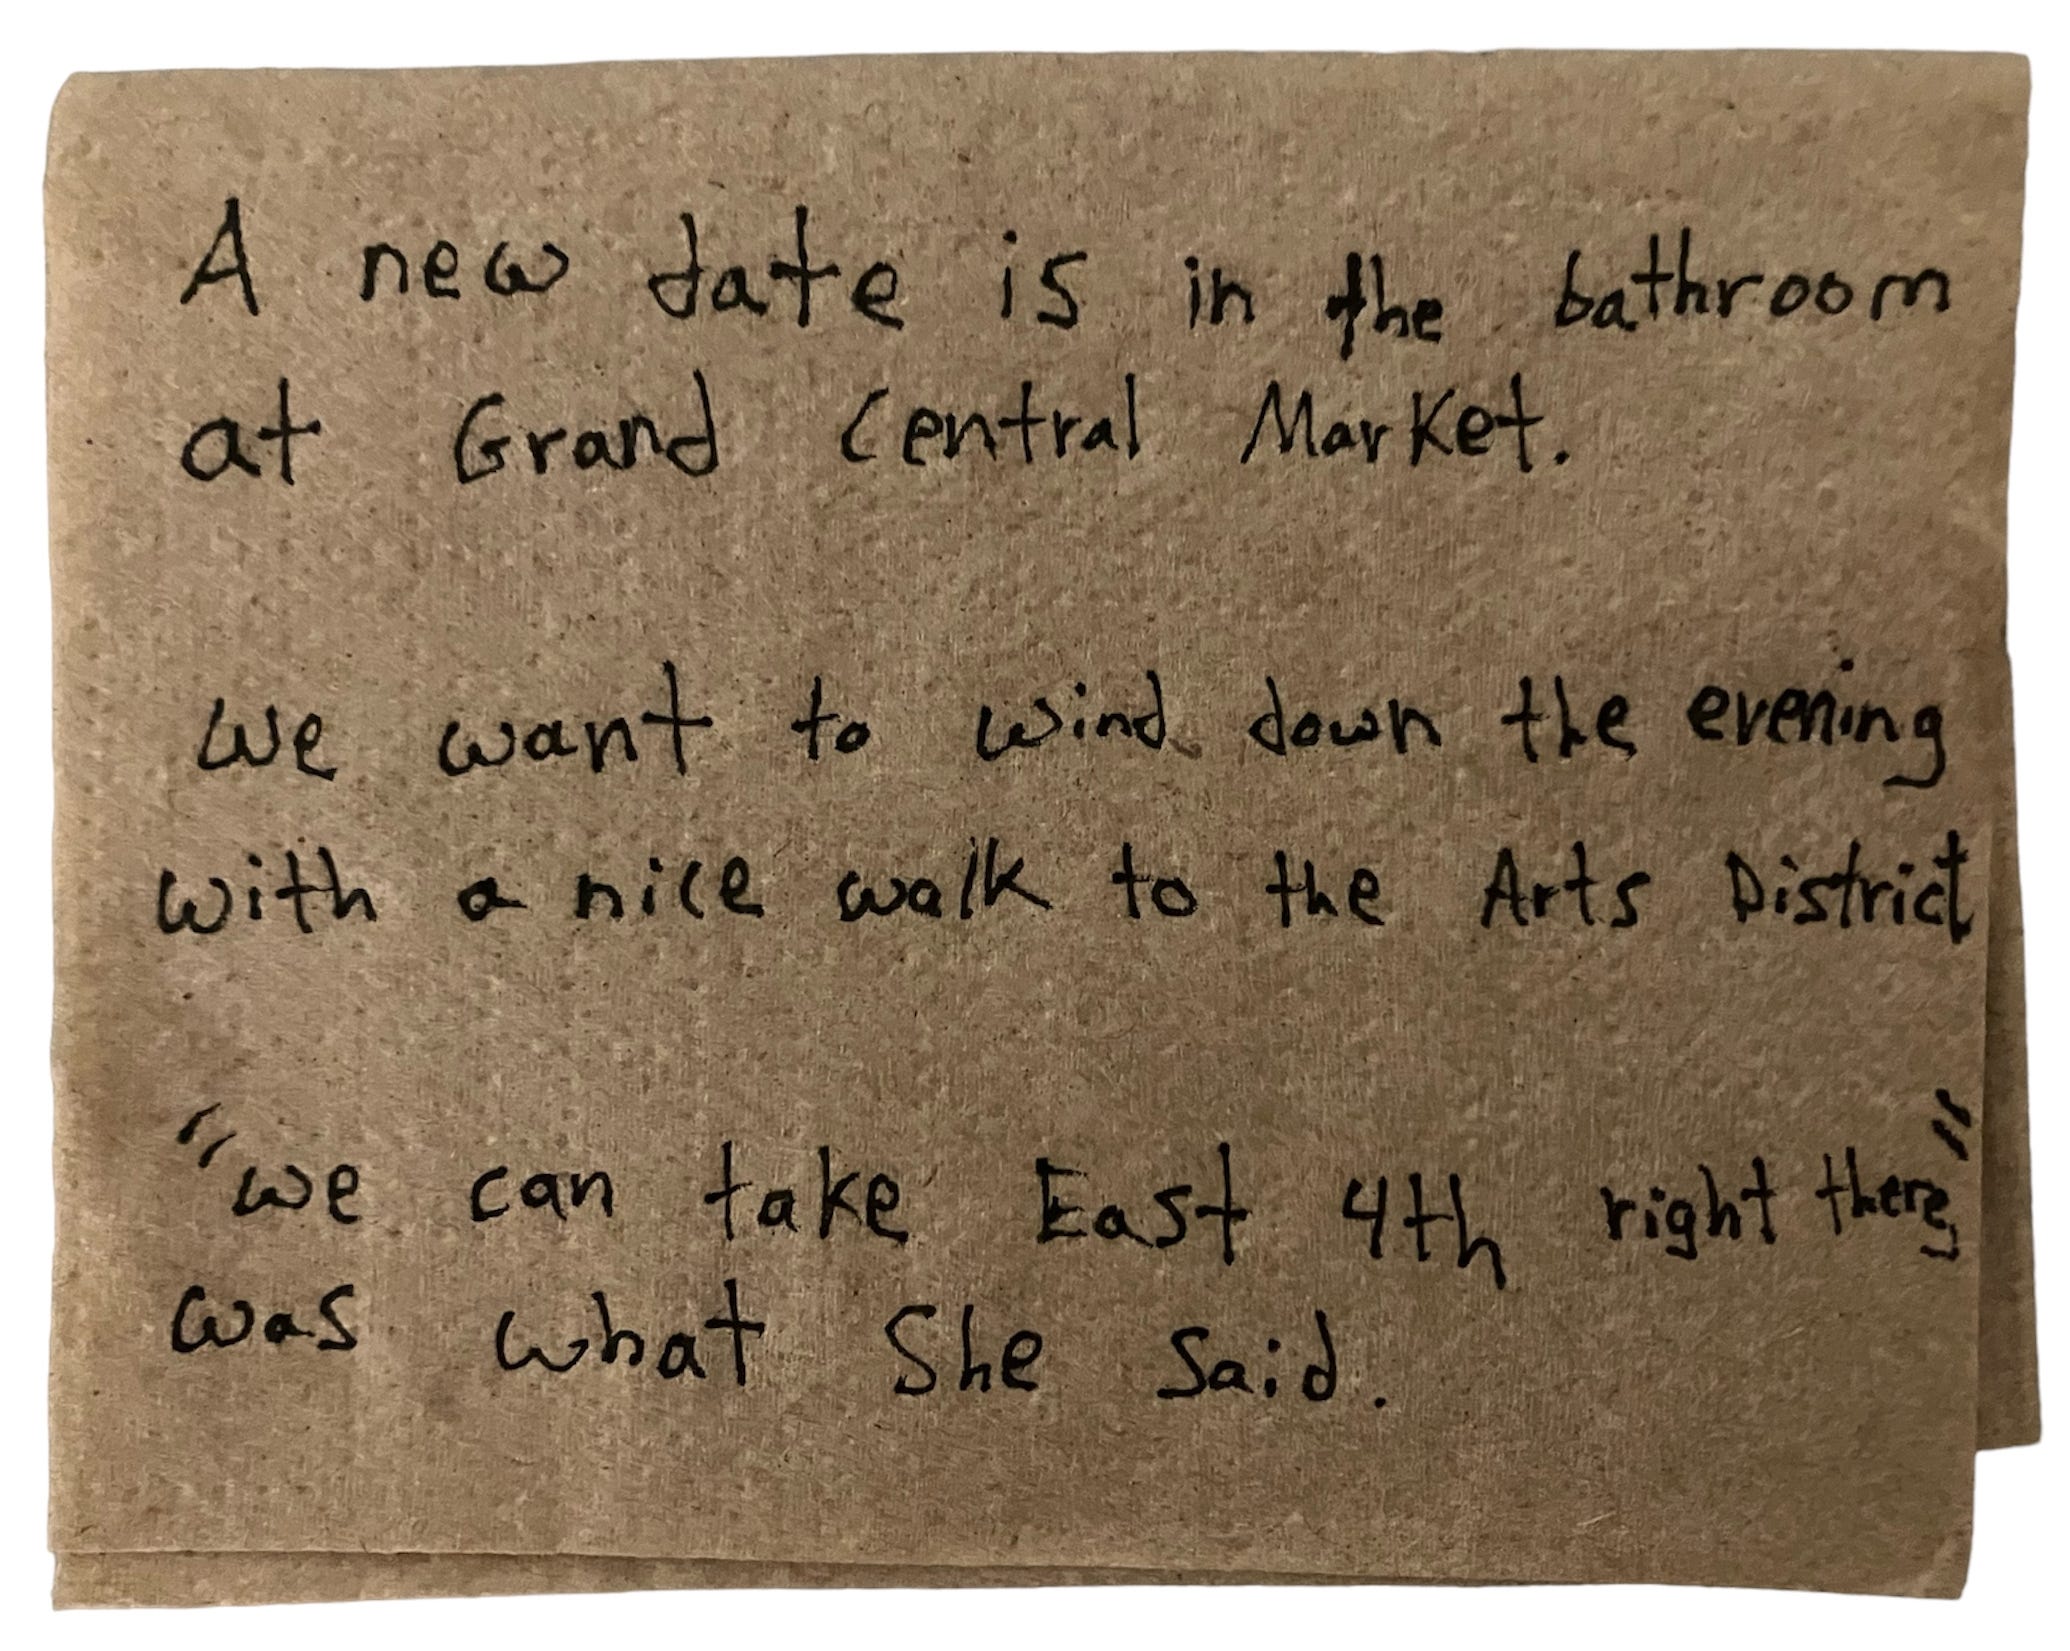 A new date is in the bathroom
at Grand Central Market.
We want to wind down the evening
with a nice walk to the Arts District
"we can take East 4th right there,"
was what She said.